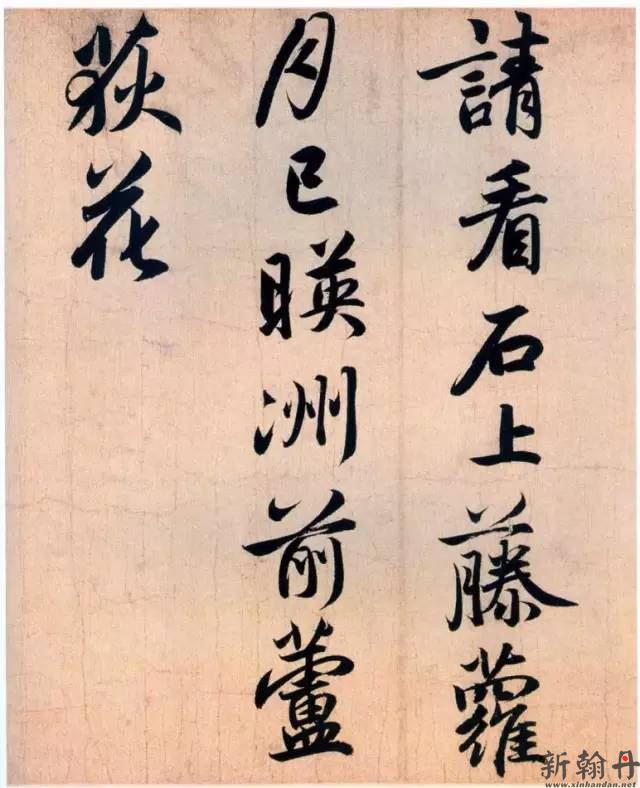 請看石上藤蘿
月已暎洲前蘆
荻花
新翰丹
www.xinhandan.net